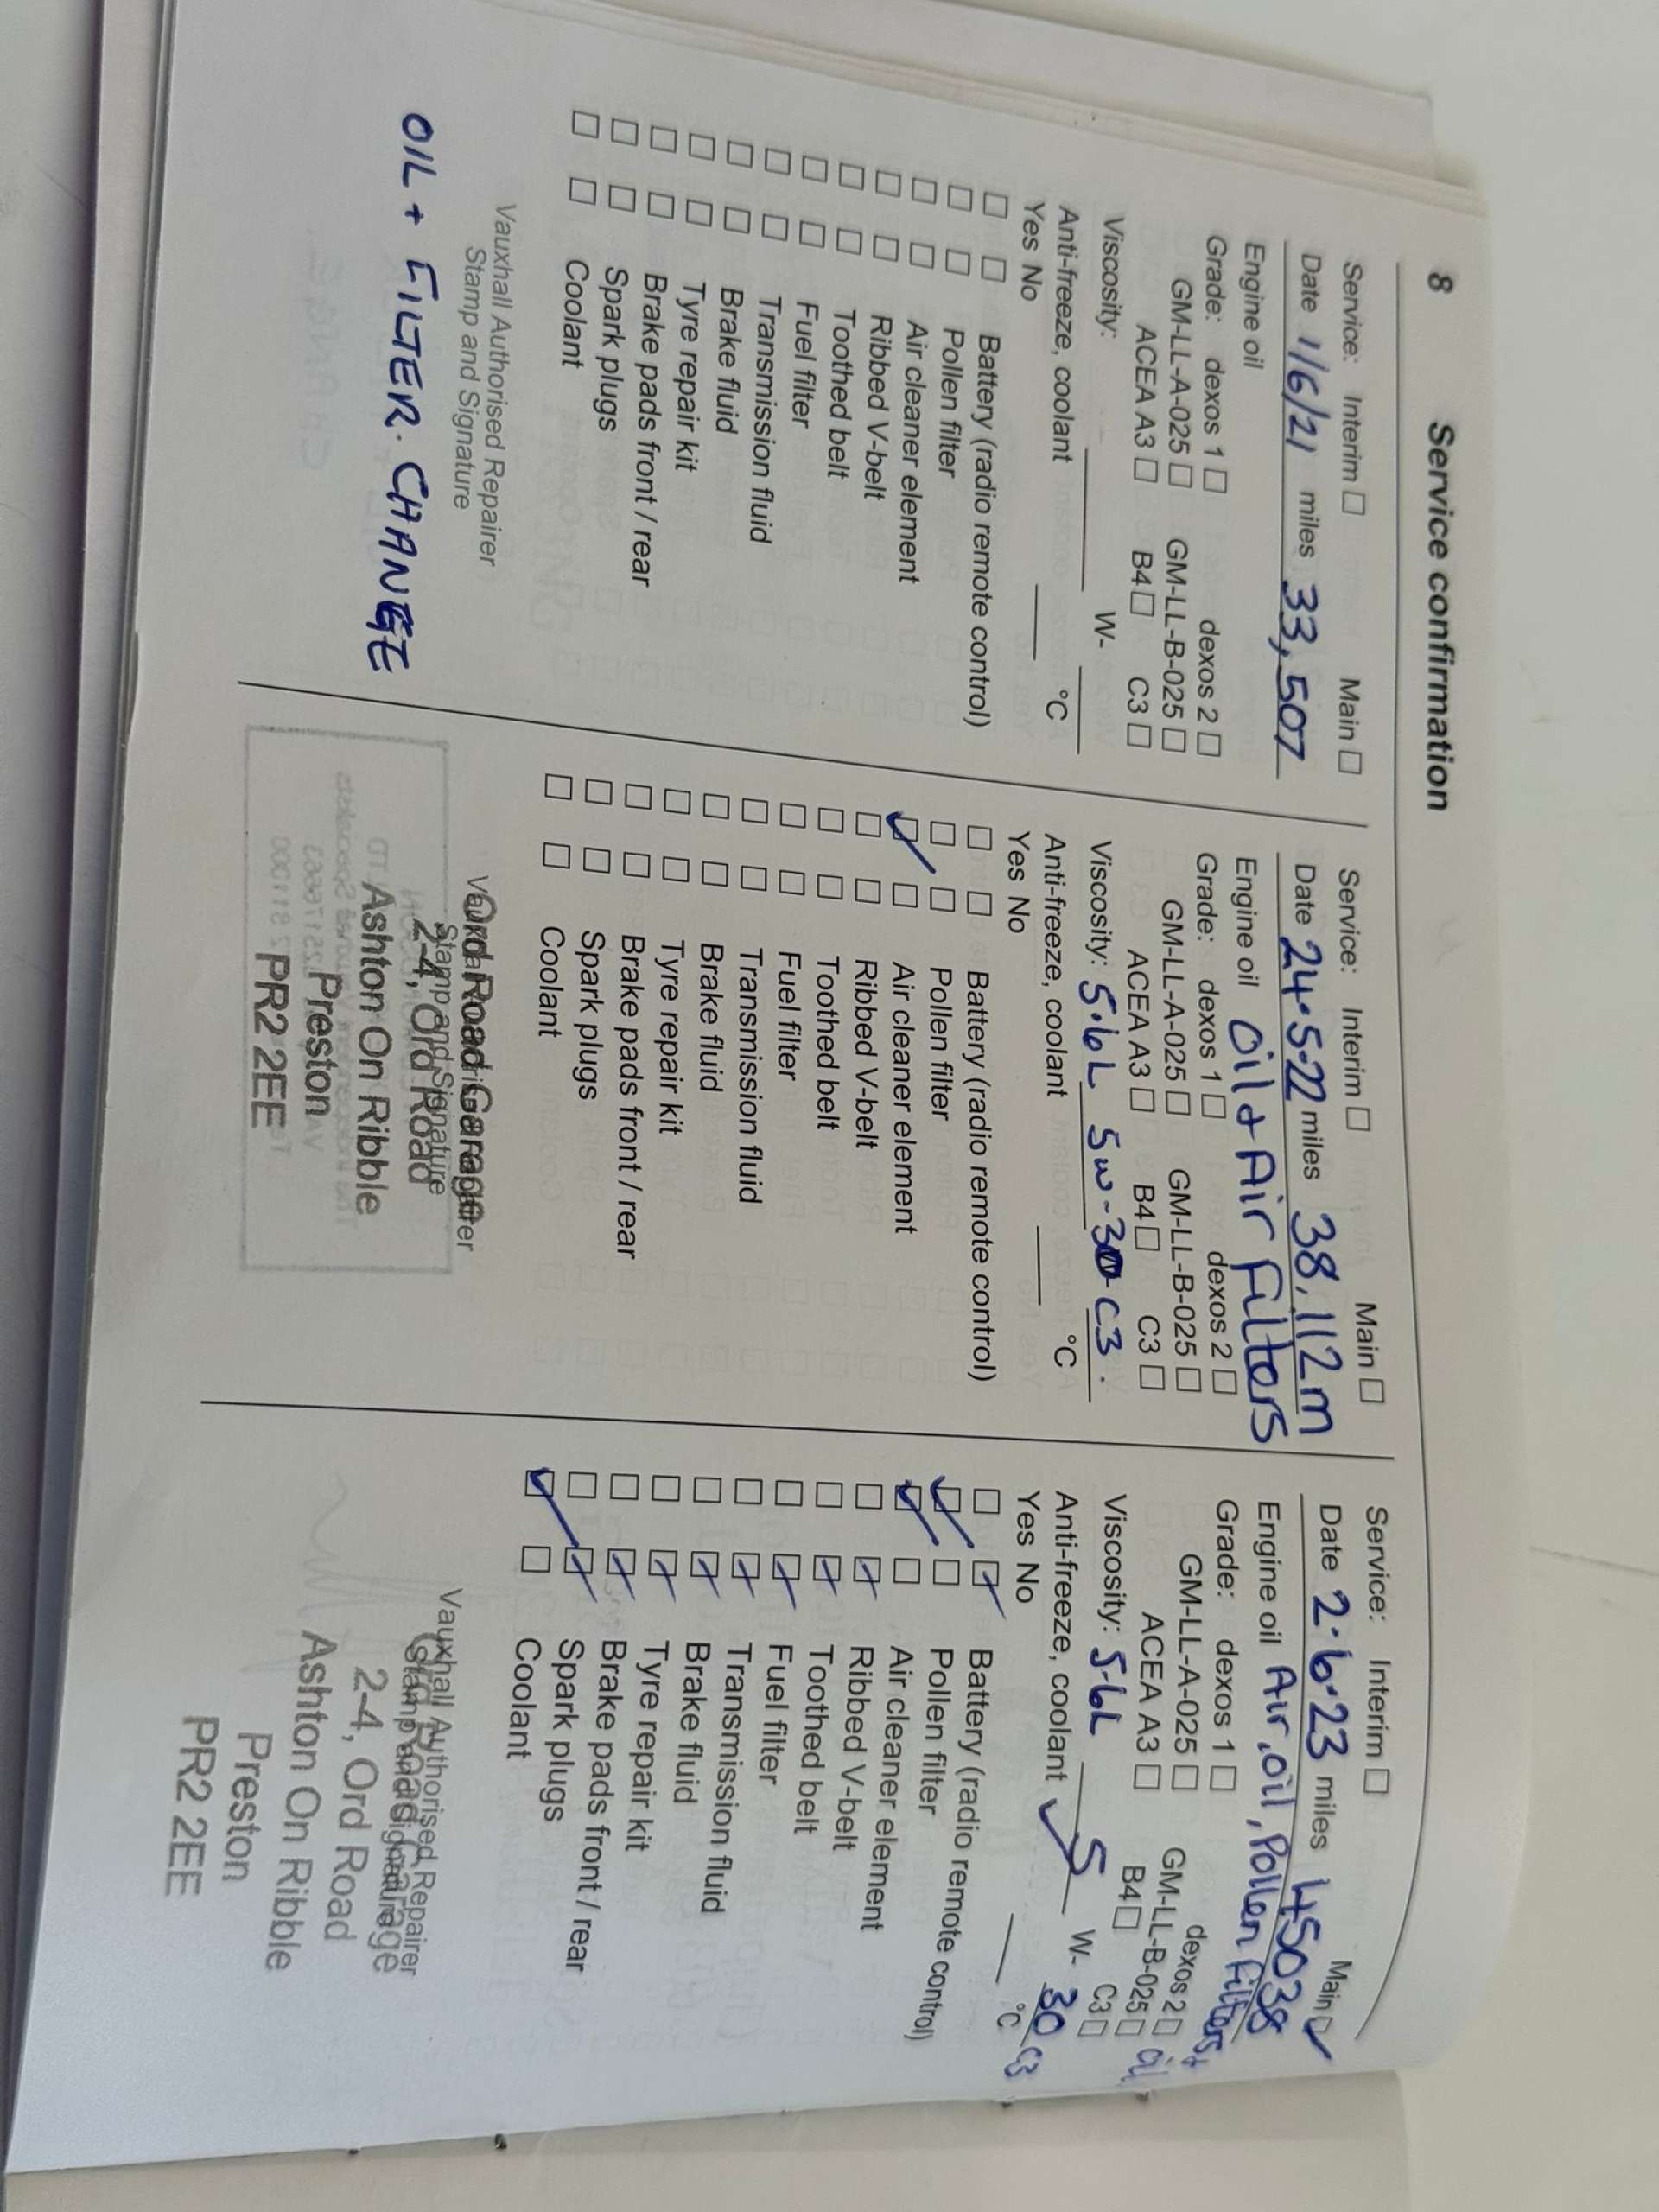 8 Service confirmation
Service: Interim □ Main □
Date 1/6/21 miles 33,507
Engine oil
Grade: dexos 1 □ dexos 2 □
GM-LL-A-025 □ GM-LL-B-025 □
ACEA A3 □ B4 □ C3 □
Viscosity: W-
Anti-freeze, coolant °C
Yes No
□ □ Battery (radio remote control)
□ □ Pollen filter
□ □ Air cleaner element
□ □ Ribbed V-belt
□ □ Toothed belt
□ □ Fuel filter
□ □ Transmission fluid
□ □ Brake fluid
□ □ Tyre repair kit
□ □ Brake pads front / rear
□ □ Spark plugs
□ □ Coolant
Vauxhall Authorised Repairer
Stamp and Signature
OIL + FILTER. CHANGE
Service: Interim □ Main □
Date 24.5.22 miles 38,112m
Engine oil Oil + Air Filters
Grade: dexos 1 □ dexos 2 □
GM-LL-A-025 □ GM-LL-B-025 □
ACEA A3 □ B4 □ C3 □
Viscosity: 5.6L 5w-30 C3.
Anti-freeze, coolant °C
Yes No
□ □ Battery (radio remote control)
□ □ Pollen filter
☑ □ Air cleaner element
□ □ Ribbed V-belt
□ □ Toothed belt
□ □ Fuel filter
□ □ Transmission fluid
□ □ Brake fluid
□ □ Tyre repair kit
□ □ Brake pads front / rear
□ □ Spark plugs
□ □ Coolant
Ord Road Garage
Stamp and Signature
2-4, Ord Road
Ashton On Ribble
Preston
PR2 2EE
Service: Interim □ Main ☑
Date 2.6.23 miles 45038
Engine oil Air, oil, Pollen filters +
Grade: dexos 1 □ dexos 2 □ oil
GM-LL-A-025 □ GM-LL-B-025 □
ACEA A3 □ B4 □ C3 □
Viscosity: 5.6L 5 W- 30 C3
Anti-freeze, coolant ✓ °C
Yes No
□ ☑ Battery (radio remote control)
☑ □ Pollen filter
☑ □ Air cleaner element
□ ☑ Ribbed V-belt
□ ☑ Toothed belt
□ ☑ Fuel filter
□ ☑ Transmission fluid
□ ☑ Brake fluid
□ ☑ Tyre repair kit
□ ☑ Brake pads front / rear
□ ☑ Spark plugs
☑ □ Coolant
Vauxhall Authorised Repairer
Stamp and Signature
2-4, Ord Road
Ashton On Ribble
Preston
PR2 2EE